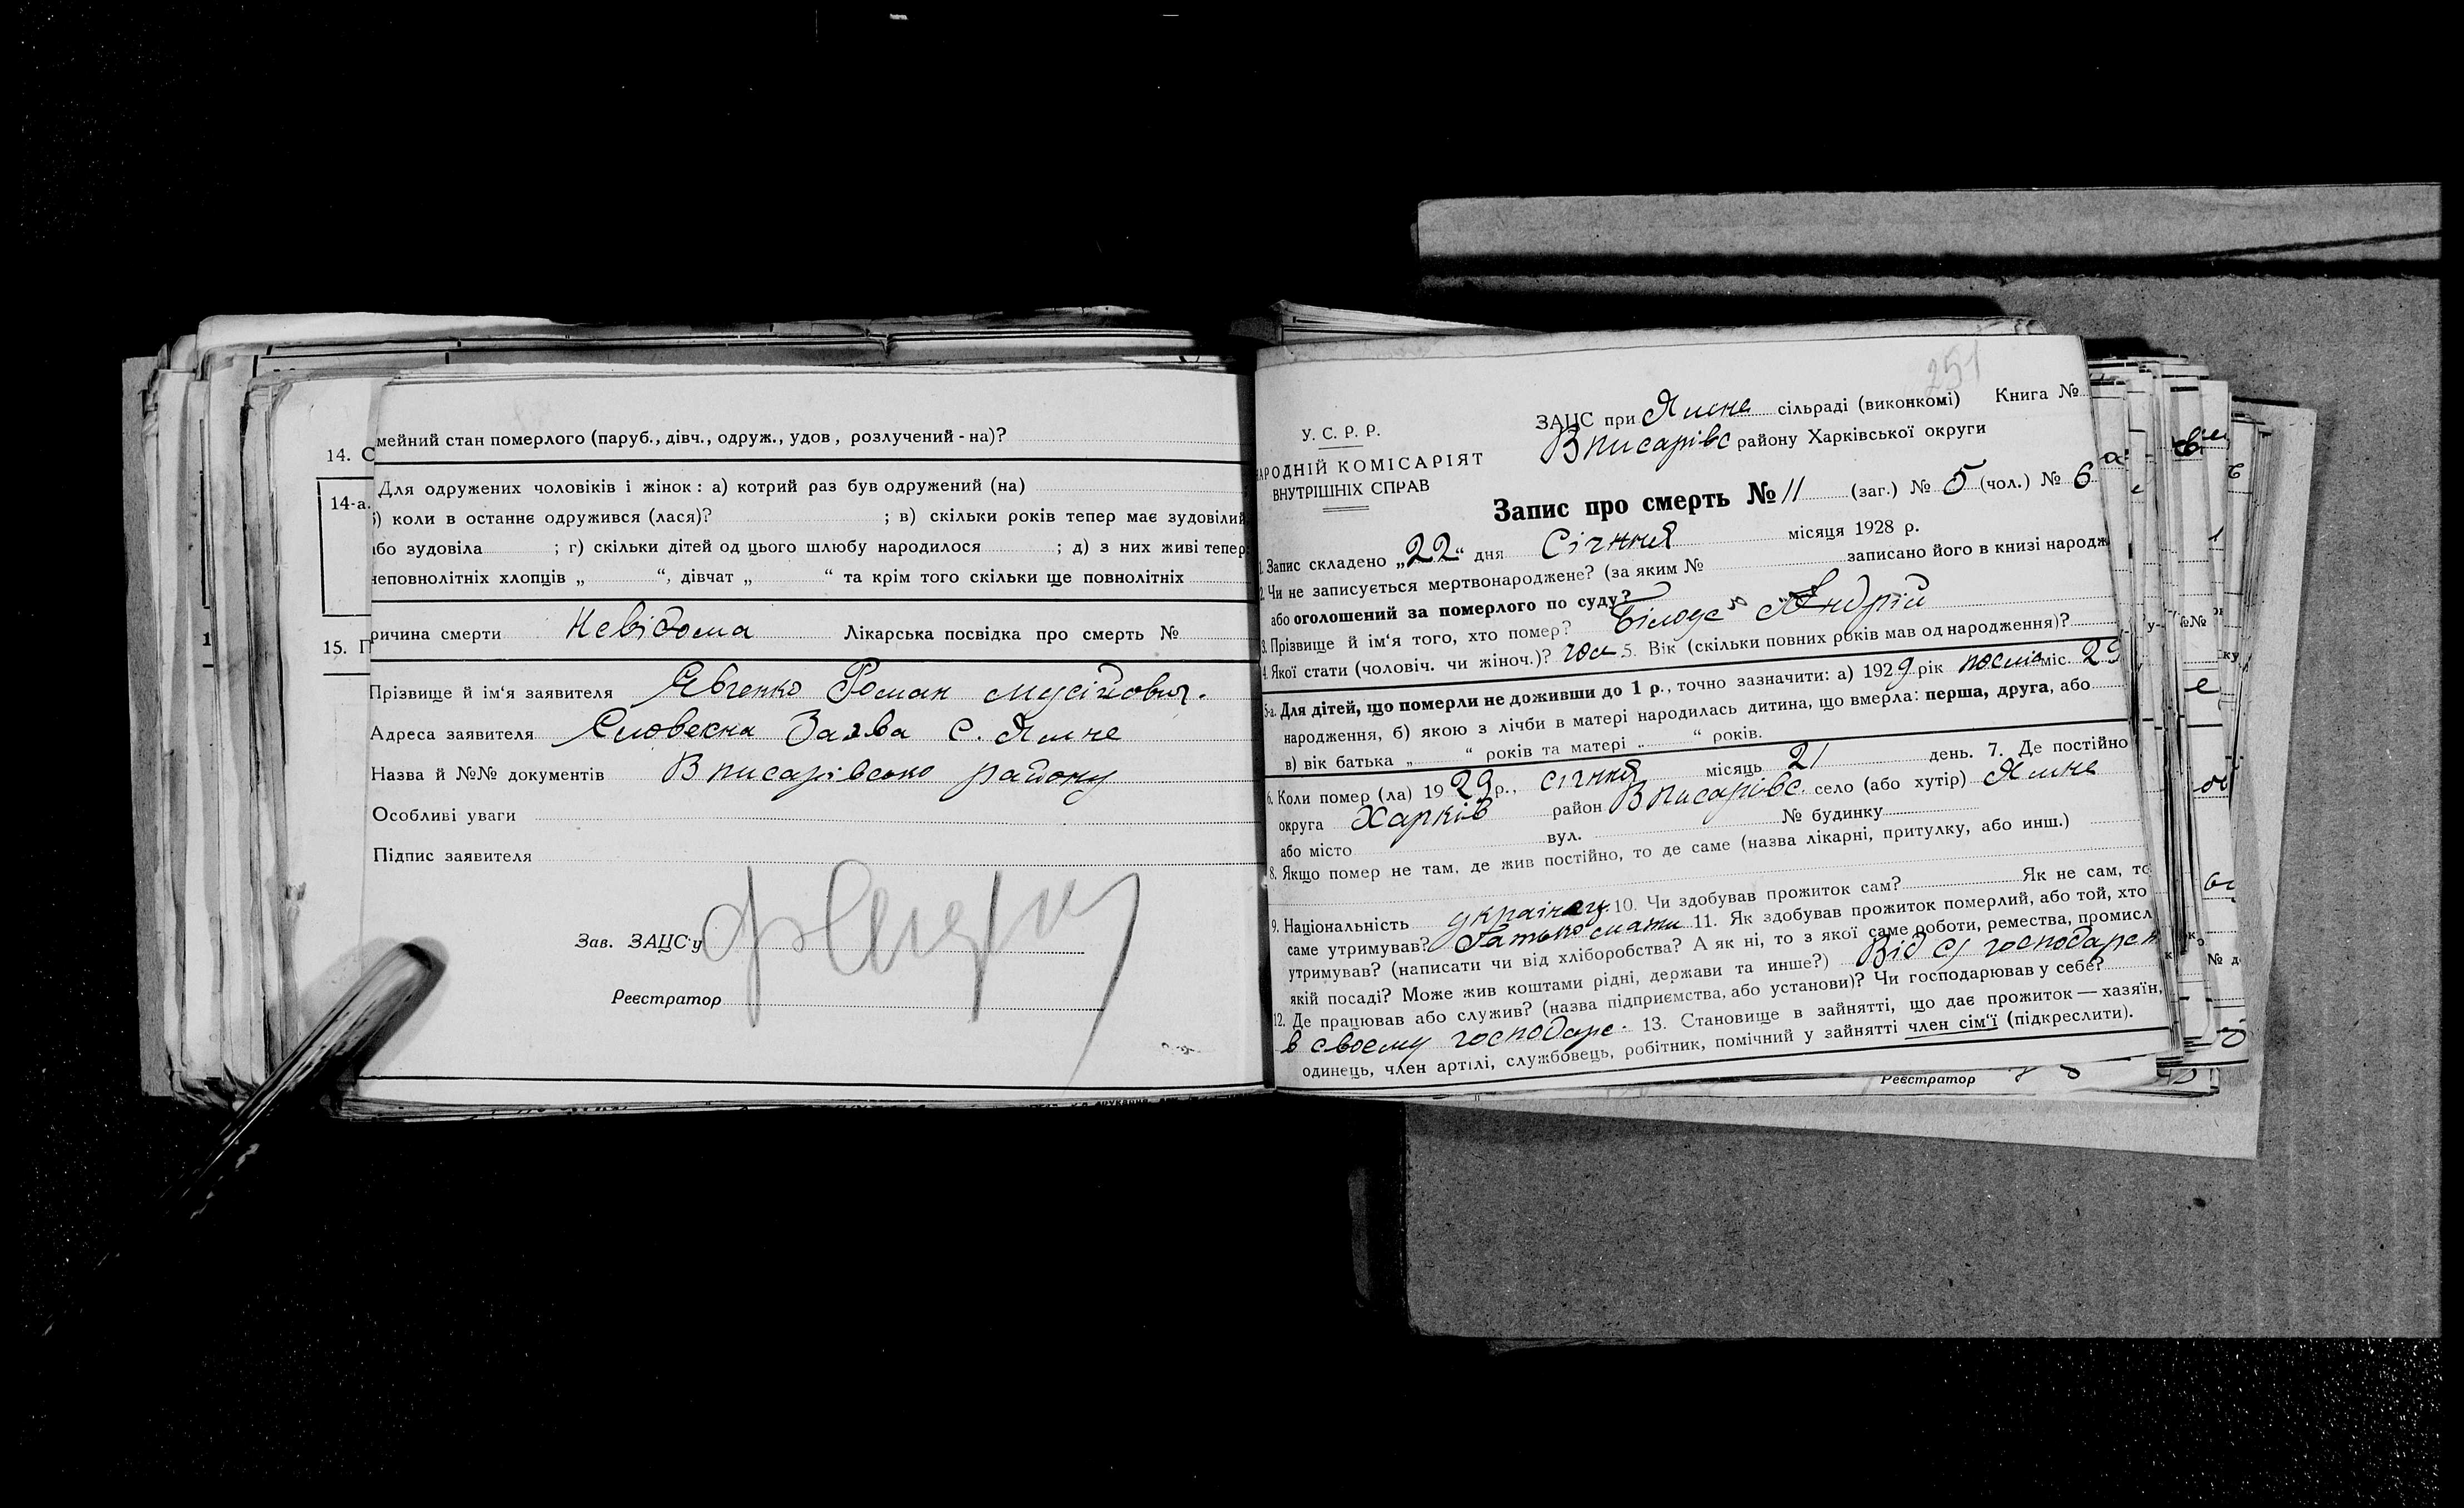 14. С
мейний стан померлого (паруб., дівч., одруж., удов, розлучений - на)?
14-а.
Для одружених чоловіків і жінок: а) котрий раз був одружений (на)
б) коли в останнє одружився (лася)? ; в) скільки років тепер має зудовілий
або зудовіла ; г) скільки дітей од цього шлюбу народилося ; д) з них живі тепер:
неповнолітніх хлопців „ “, дівчат „ “ та крім того скільки ще повнолітніх
15. П
ричина смерти Невідома Лікарська посвідка про смерть №
Прізвище й ім'я заявителя Явченко Роман мусійович.
Адреса заявителя Словесна Заява с. Ямне
Назва й №№ документів В писарівсько району
Особливі уваги
Підпис заявителя
Зав. ЗАЦС'у
Реєстратор
251
У. С. Р. Р.
НАРОДНІЙ КОМІСАРІЯТ
ВНУТРІШНІХ СПРАВ
ЗАЦС при Ямне сільраді (виконкомі) Книга №
В писарівс району Харківської округи
Запис про смерть № 11 (заг.) № 5 (чол.) № 6
1. Запис складено „22“ дня Січння місяця 1928 р.
2. Чи не записується мертвонароджене? (за яким № записано його в книзі народж
або оголошений за померлого по суду?
3. Прізвище й ім'я того, хто помер? Білоус Андрій
4. Якої стати (чоловіч. чи жіноч.)? чол 5. Вік (скільки повних років мав од народження)?
5-а. Для дітей, що померли не доживши до 1 р., точно зазначити: а) 1929 рік міс. 29
народження, б) якою з лічби в матері народилась дитина, що вмерла: перша, друга, або
в) вік батька „ “ років та матері „ “ років.
6. Коли помер (ла) 1929 р., січння місяць 21 день. 7. Де постійно
округа Харків район В писарівс. село (або хутір) Ямне
або місто вул. № будинку
8. Якщо помер не там, де жив постійно, то де саме (назва лікарні, притулку, або инш.)
9. Національність українец. 10. Чи здобував прожиток сам? Як не сам, то
саме утримував? Батько мати 11. Як здобував прожиток померлий, або той, хто
утримував? (написати чи від хліборобства? А як ні, то з якої саме роботи, ремества, промисл
якій посаді? Може жив коштами рідні, держави та инше?) Від с/ господарст
12. Де працював або служив? (назва підприємства, або установи)? Чи господарював у себе?
в своєму господарс. 13. Становище в зайнятті, що дає прожиток — хазяїн,
одинець, член артілі, службовець, робітник, помічний у зайнятті член сім'ї (підкреслити).
Реєстратор